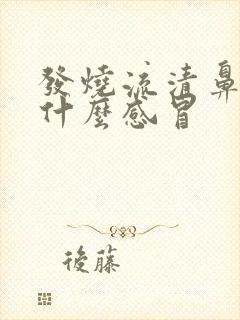 發燒流清鼻
什麼感冒
後藤